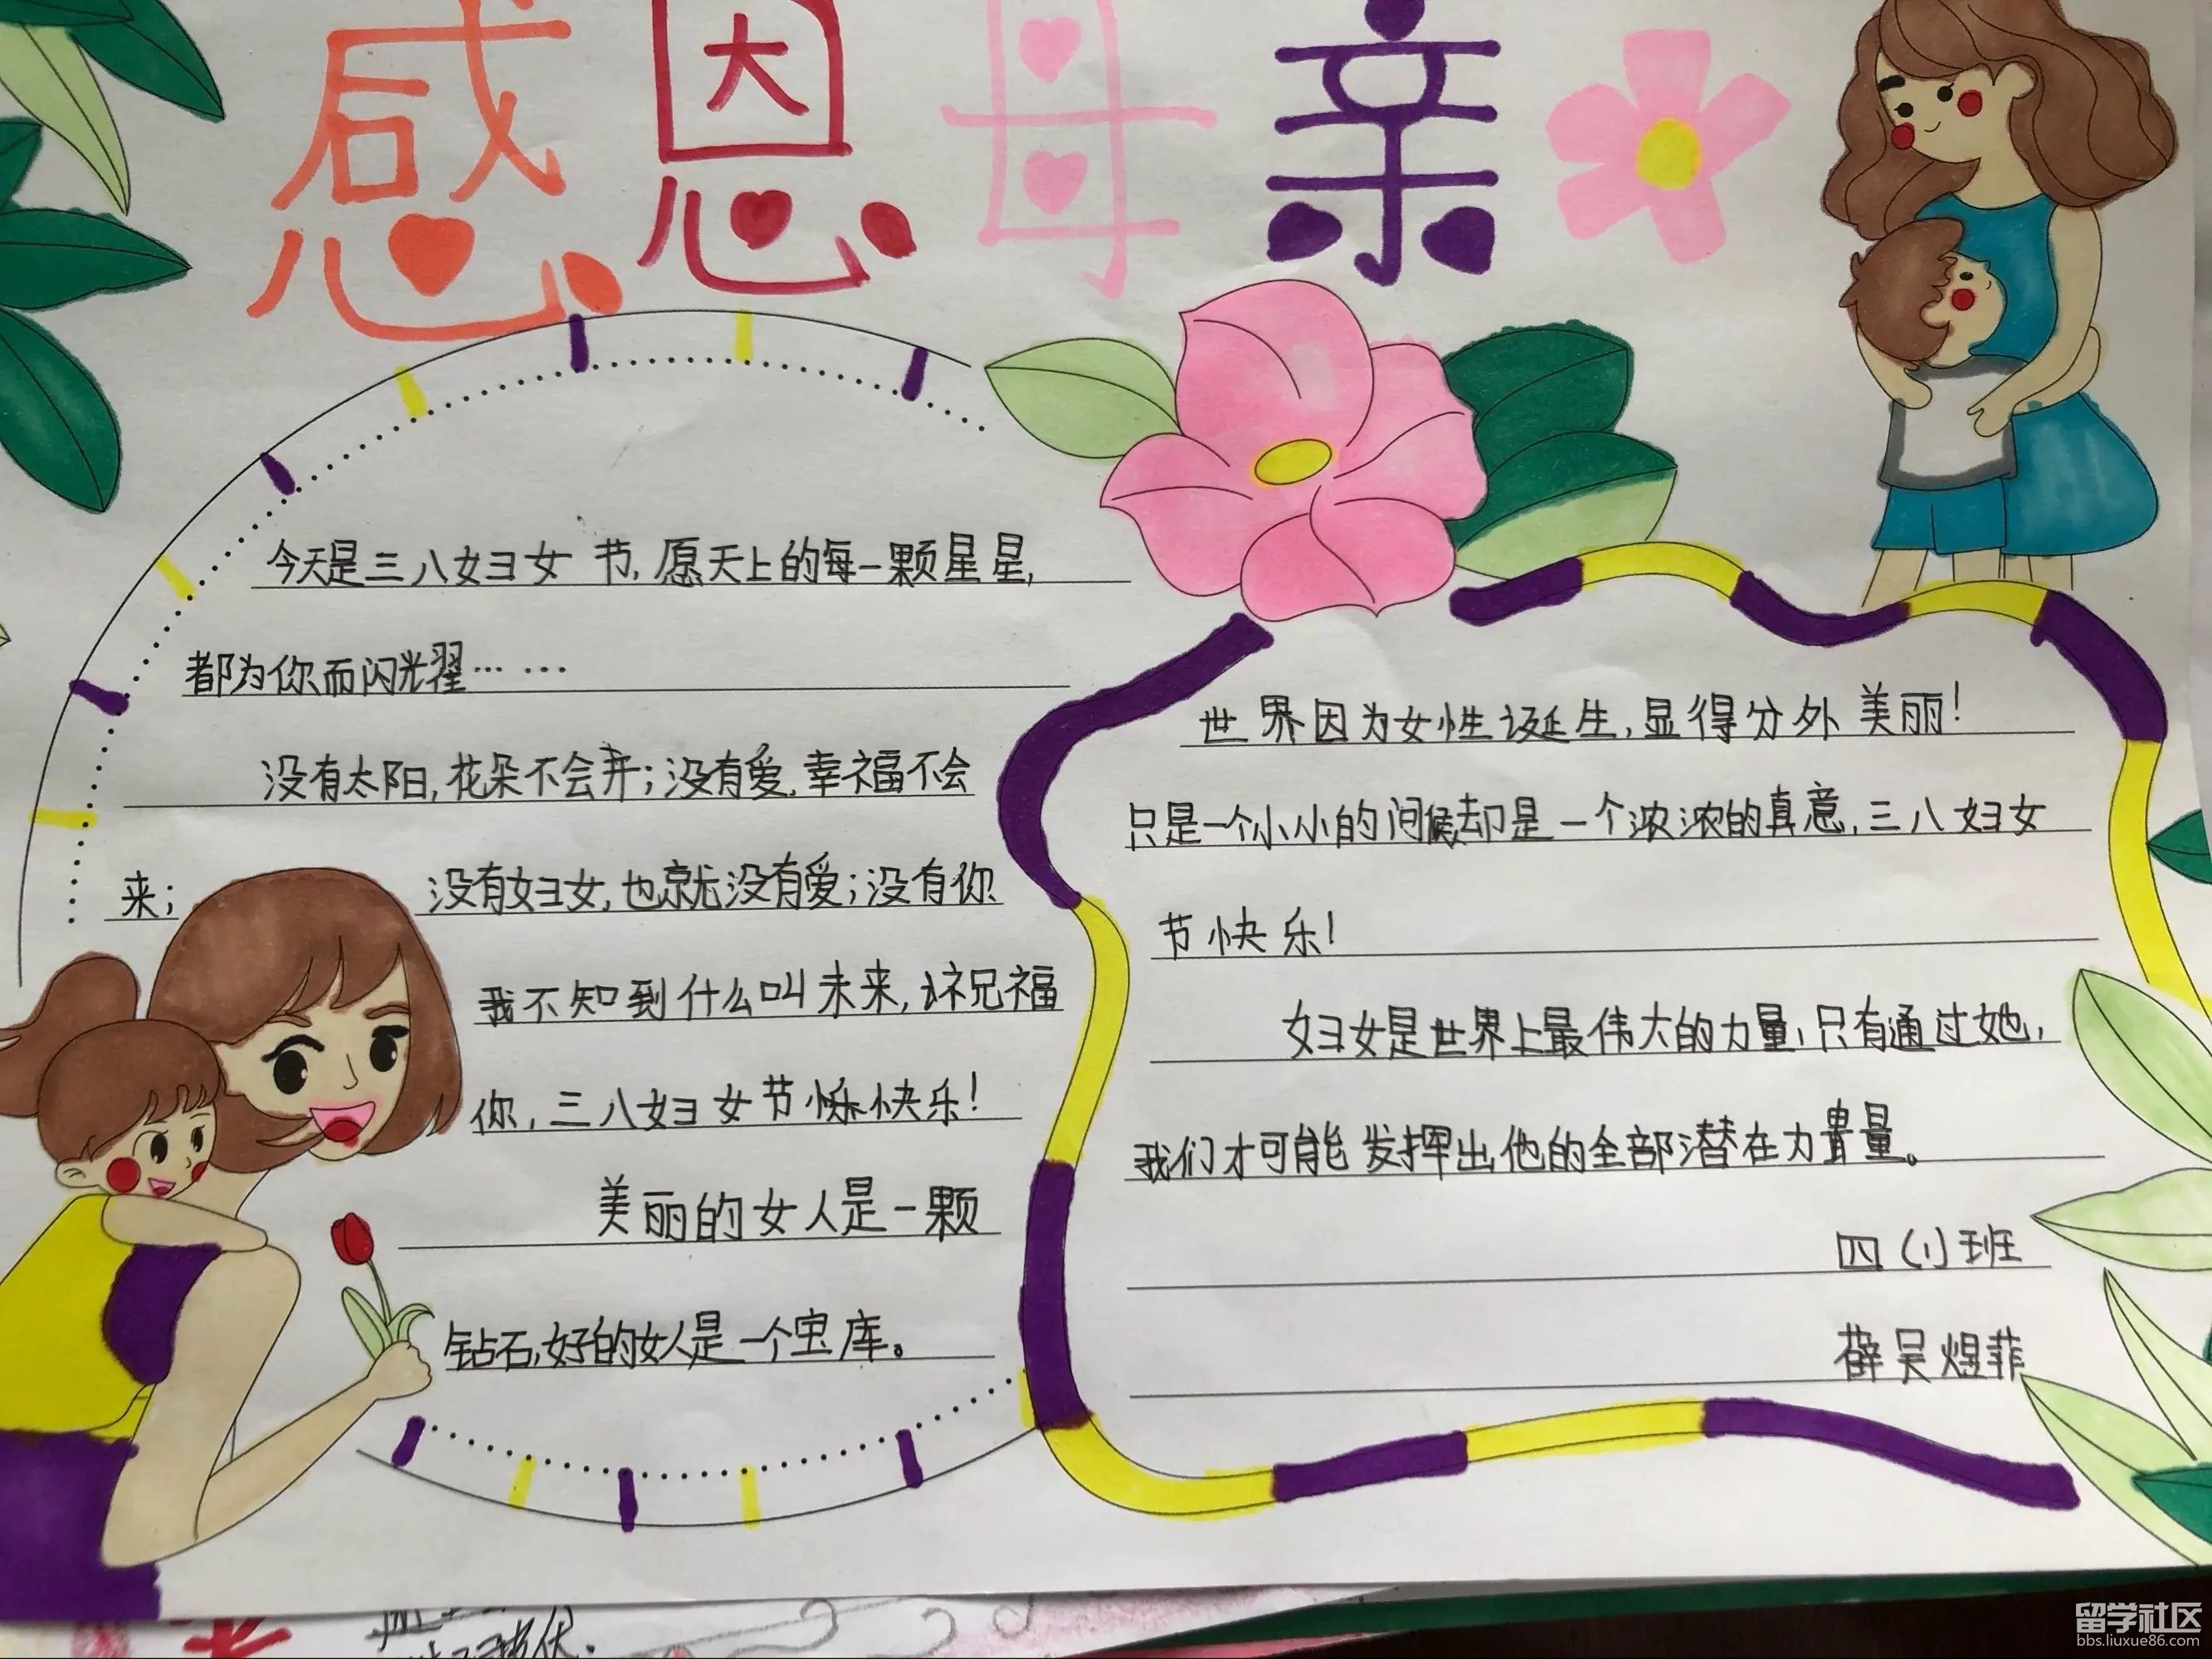 感恩母亲
今天是三八妇女节,愿天上的每一颗星星,
都为你而闪光耀……
没有太阳,花朵不会开;没有爱,幸福不会
来;没有妇女,也就没有爱;没有你
我不知到什么叫未来,祝福
你,三八妇女节快乐!
美丽的女人是一颗
钻石,好的女人是一个宝库。
世界因为女性诞生,显得分外美丽!
只是一个小小的问候却是一个浓浓的真意,三八妇女
节快乐!
妇女是世界上最伟大的力量,只有通过她,
我们才可能发挥出他的全部潜在力量。
四(1)班
薛吴煜菲
留学社区
bbs.liuxue86.com